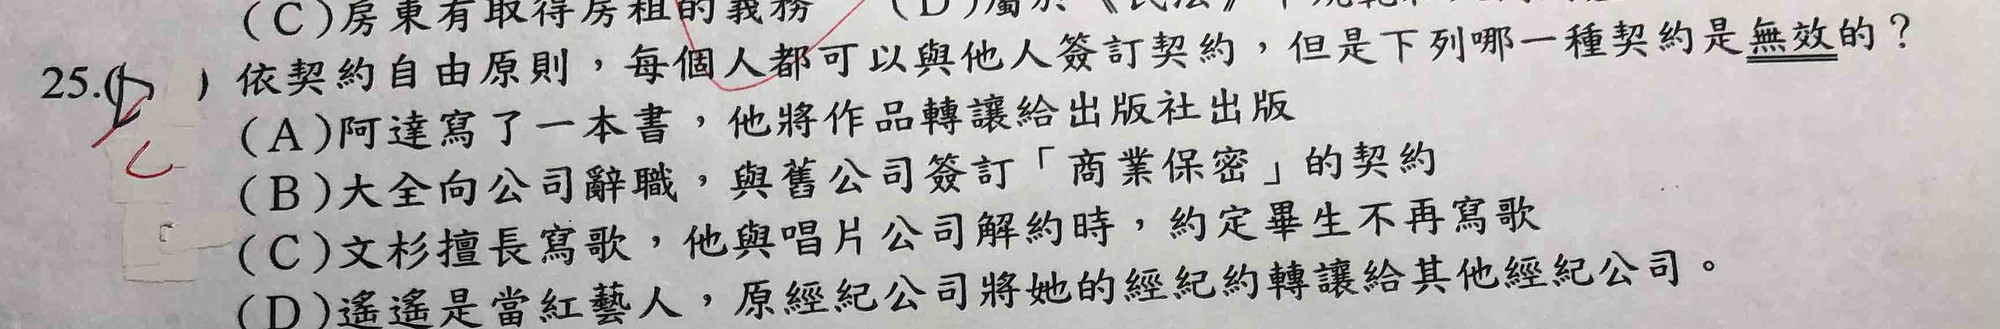 (C)房東有取得房租的義務 (D)屬於《民法》
25.(D) 依契約自由原則，每個人都可以與他人簽訂契約，但是下列哪一種契約是無效的？
C
(A)阿達寫了一本書，他將作品轉讓給出版社出版
(B)大全向公司辭職，與舊公司簽訂「商業保密」的契約
(C)文杉擅長寫歌，他與唱片公司解約時，約定畢生不再寫歌
(D)遙遙是當紅藝人，原經紀公司將她的經紀約轉讓給其他經紀公司。